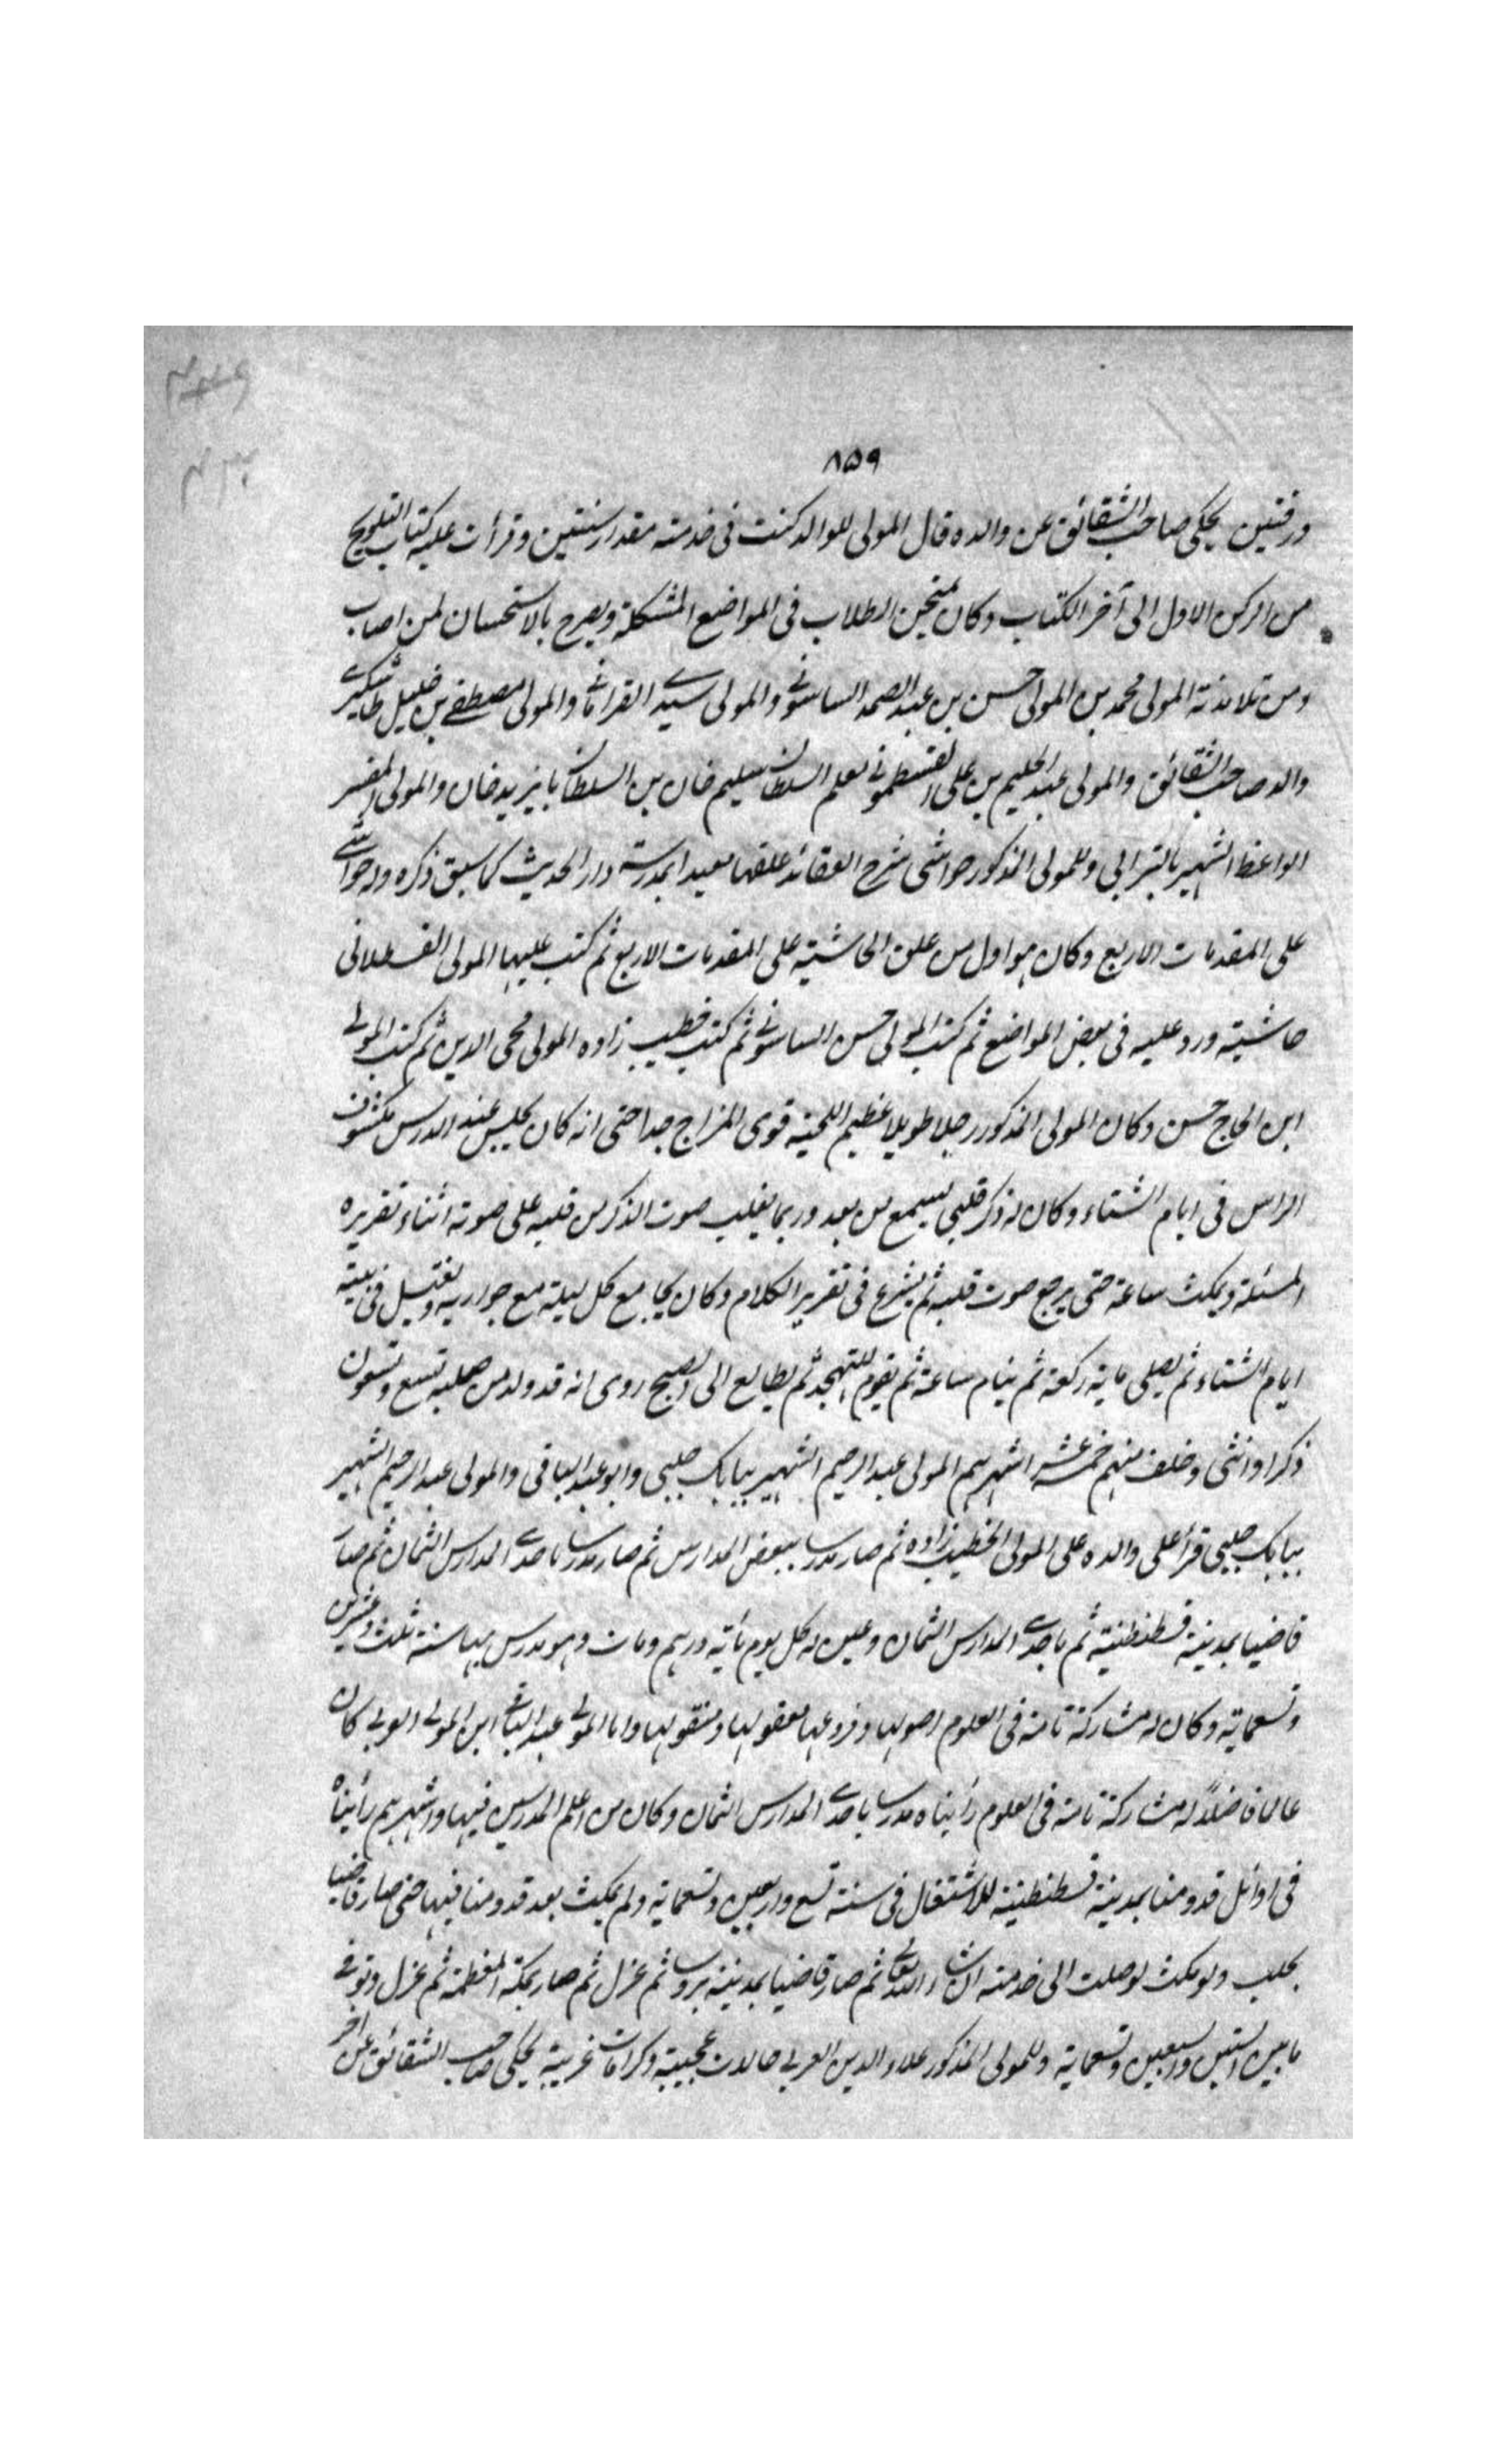 ٨٥٩
ورقتين يحكى صاحب الشقائق عن والده قال المولى للوالد كنت فى خدمته مقدار سنتين وقرأت عليه كتاب التلويح
من الركن الاول الى آخر الكتاب وكان يمتحن الطلاب فى المواضع المشكلة ويصرح بالاستحسان لمن اصاب
ومن تلامذته المولى محمد بن المولى حسن بن عبد الصمد الساموني والمولى سيدي القراماني والمولى مصطفى بن خليل طاشكبري
والد صاحب الشقائق والمولى عبد الحليم بن على القسطموني معلم السلطان سليم خان بن السلطان بايزيد خان والمولى المفسر
الواعظ الشهير بالتبرابى وللمولى المذكور حواشى شرح العقائد علقها معيدا بمدرسة دار الحديث كما سبق ذكره وله حواشي
على المقدمات الاربع وكان هو اول من علق الحاشية على المقدمات الاربع ثم كتب عليها المولى القسطلانى
حاشيته ورد عليه فى بعض المواضع ثم كتب المولى حسن الساموني ثم كتب خطيب زاده المولى محى الدين ثم كتب المولى
ابن الحاج حسن وكان المولى المذكور رجلا طويلا عظيم اللحية قوى المزاج جدا حتى انه كان يجلس عند الدرس مكشوف
الراس فى ايام الشتاء وكان له ذكر قلبى يسمع من بعد وربما يغلب صوت الذكر من قلبه على صوته اثناء تقريره
المسئلة ويمكث ساعة حتى يرجع صوت قلبه ثم يشرع فى تقرير الكلام وكان يجامع كل ليلة مع جواريه ويغتسل فى بيته
ايام الشتاء ثم يصلى ماية ركعة ثم ينام ساعة ثم يقوم للتهجد ثم يطالع الى الصبح روى انه قد ولد من صلبه تسع وتسعون
ذكرا وانثى وخلف منهم خمسة عشر اشهرهم المولى عبد الرحيم الشهير ببابك چلبى وابو عبد الباقى والمولى عبد الرحيم الشهير
ببابك چلبى قرأ على والده على المولى الخطيب زاده ثم صار مدرسا ببعض المدارس ثم صار مدرسا باحدى المدارس الثمان ثم صار
قاضيا بمدينة قسطنطنية ثم باحدى المدارس الثمان وعين له كل يوم مأية درهم ومات وهو مدرس بها سنة ثلث وعشرين
وتسعماية وكان له مشاركة تامة فى العلوم اصولها وفروعها معقولها ومنقولها واما المولى عبد الباقي ابن المولى العربى كان
عالما فاضلاً له مشاركة تامة فى العلوم رأيناه مدرسا باحدى المدارس الثمان وكان من اعلم المدرسين فيها واشهرهم رأيناه
فى اوائل قدومنا بمدينة قسطنطنية للاشتغال فى سنة تسع واربعين وتسعماية ولم يمكث بعد قدومنا فيها حتى صار قاضيا
بحلب ولو مكث لوصلت الى خدمته ان شاء الله تعالى ثم صار قاضيا بمدينة بروسا ثم عزل ثم صار بمكة المعظمة ثم عزل وتوفي
ما بين الستين والسبعين وتسعماية وللمولى المذكور علاء الدين العربى حالات عجيبة وكرامات غريبة يحكى صاحب الشقائق عن آخر